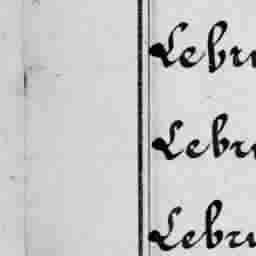 Lebru
Lebru
Lebru